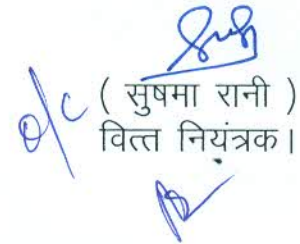 o/c ( सुषमा रानी )
वित्त नियंत्रक।